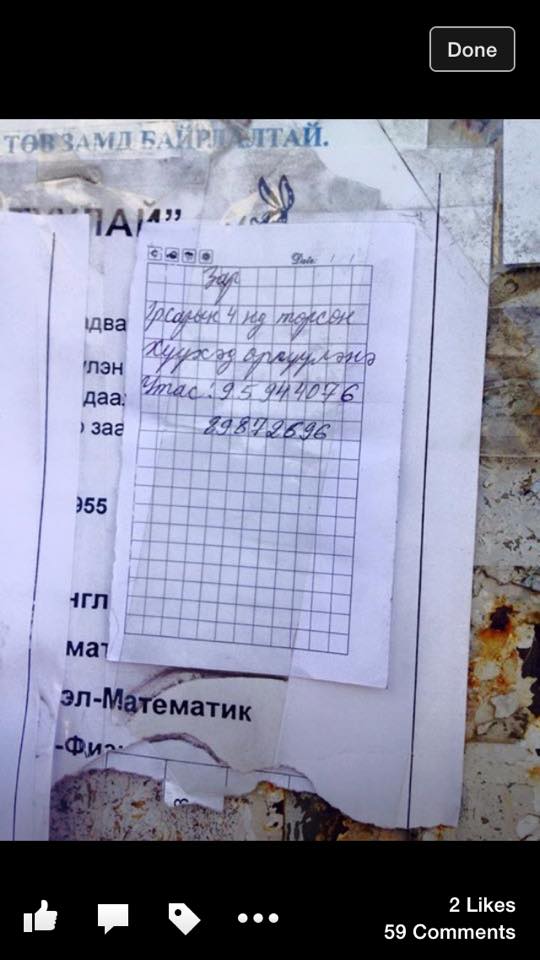 Done
ТӨВ ЗАМД БАЙРЛАЛТАЙ.
Date: / /
Зар
1 сарын 4 нд төрсөн
Хүүхэд өргүүлэнэ
Утас: 95944076
89872696
адва
лэн
даа
заа
955
нгл
мат
эл-Математик
-Физ
8
2 Likes
59 Comments